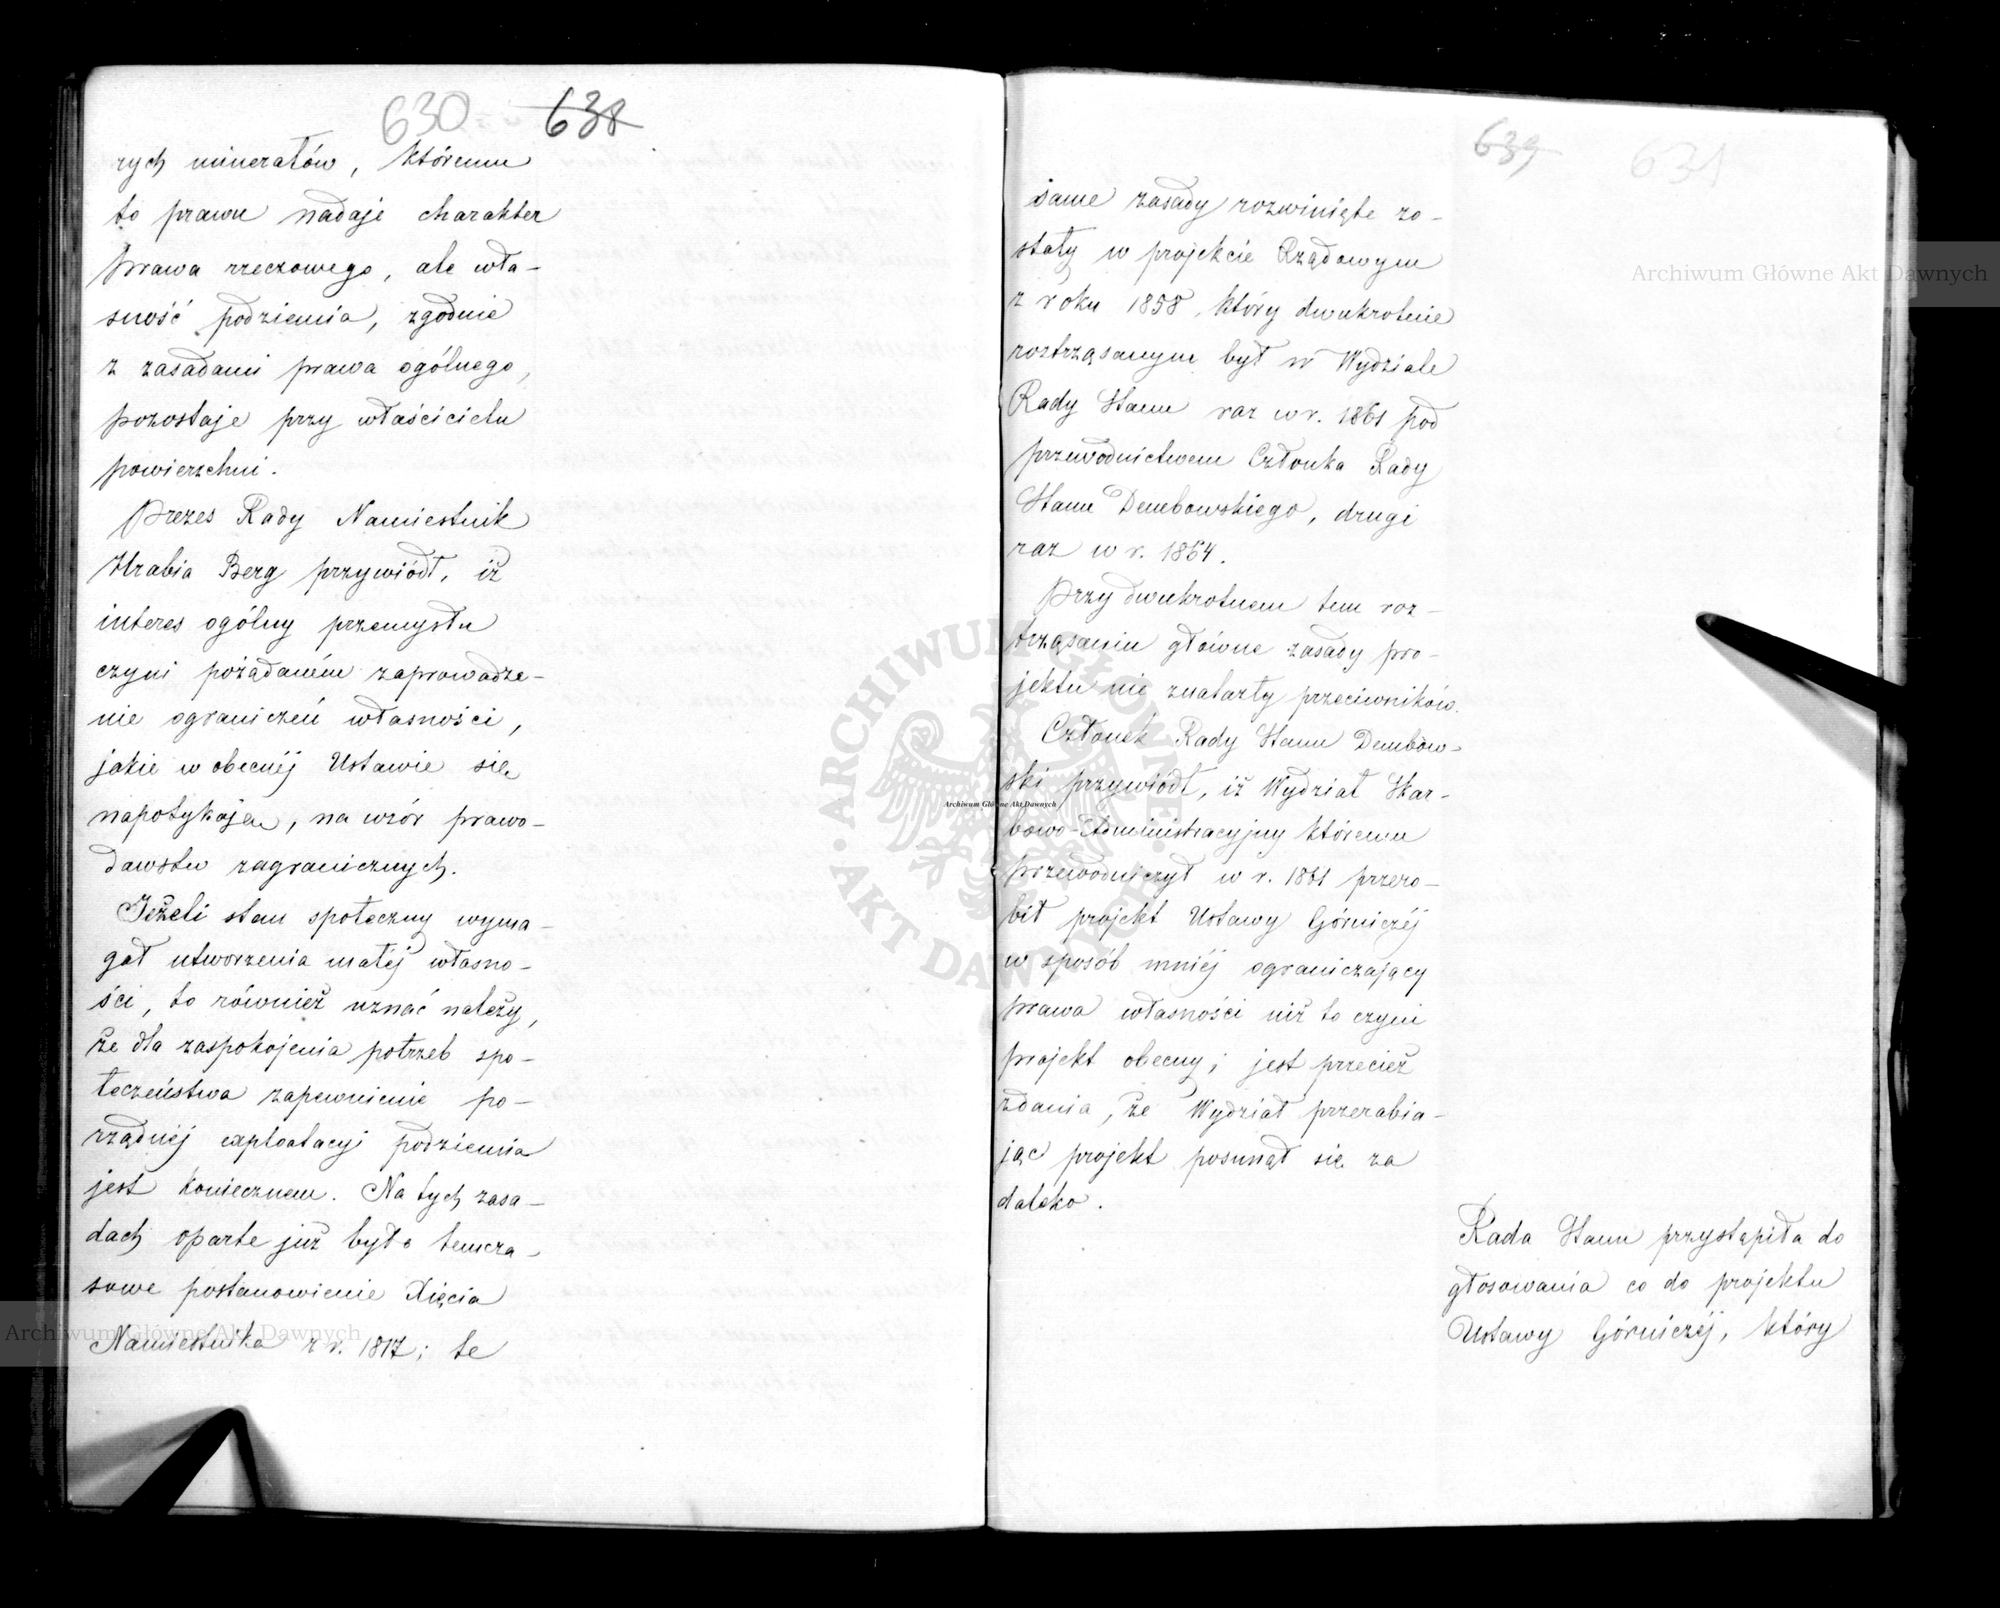 630 638
rych minerałów, któremu
to prawu nadaje charakter
prawa rzeczowego, ale wła-
sność podziemia, zgodnie
z zasadami prawa ogólnego,
pozostaje przy właścicielu
powierzchni.
Prezes Rady Namiestnik
Hrabia Berg przywiódł, iż
interes ogólny przemysłu
czyni pożądaném zaprowadze-
nie ograniczeń własności,
jakie w obecnéj Ustawie się
napotykają, na wzór prawo-
dawstw zagranicznych.
Jeżeli stan społeczny wyma-
gał utworzenia małéj własno-
ści, to również uznać należy,
że dla zaspokojenia potrzeb spo-
łeczeństwa zapewnienie po-
rządnéj exploatacyi podziemia
jest koniecznem. Na tych zasa-
dach oparte już było tymcza-
sowe postanowienie Xięcia
Namiestnika z r. 1817; te
639 631
same zasady rozwinięte zo-
stały w projekcie Rządowym
z roku 1858, który dwukrotnie
roztrząsanym był w Wydziale
Rady Stanu raz w r. 1861 pod
przewodnictwem Członka Rady
Stanu Dembowskiego, drugi
raz w r. 1864.
Przy dwukrotnem tem roz-
trząsaniu główne zasady pro-
jektu nie znalazły przeciwników.
Członek Rady Stanu Dembow-
ski przywiódł, iż Wydział Skar-
bowo-Administracyjny któremu
przewodniczył w r. 1861 przero-
bił projekt Ustawy Górniczéj
w sposób mniéj ograniczający
prawa własności niż to czyni
projekt obecny; jest przecież
zdania, że Wydział przerabia-
jąc projekt posunął się za
daleko.
Rada Stanu przystąpiła do
głosowania co do projektu
Ustawy Górniczéj, który
Archiwum Główne Akt Dawnych
Archiwum Główne Akt Dawnych
Archiwum Główne Akt Dawnych
ARCHIWUM GŁÓWNE AKT DAWNYCH